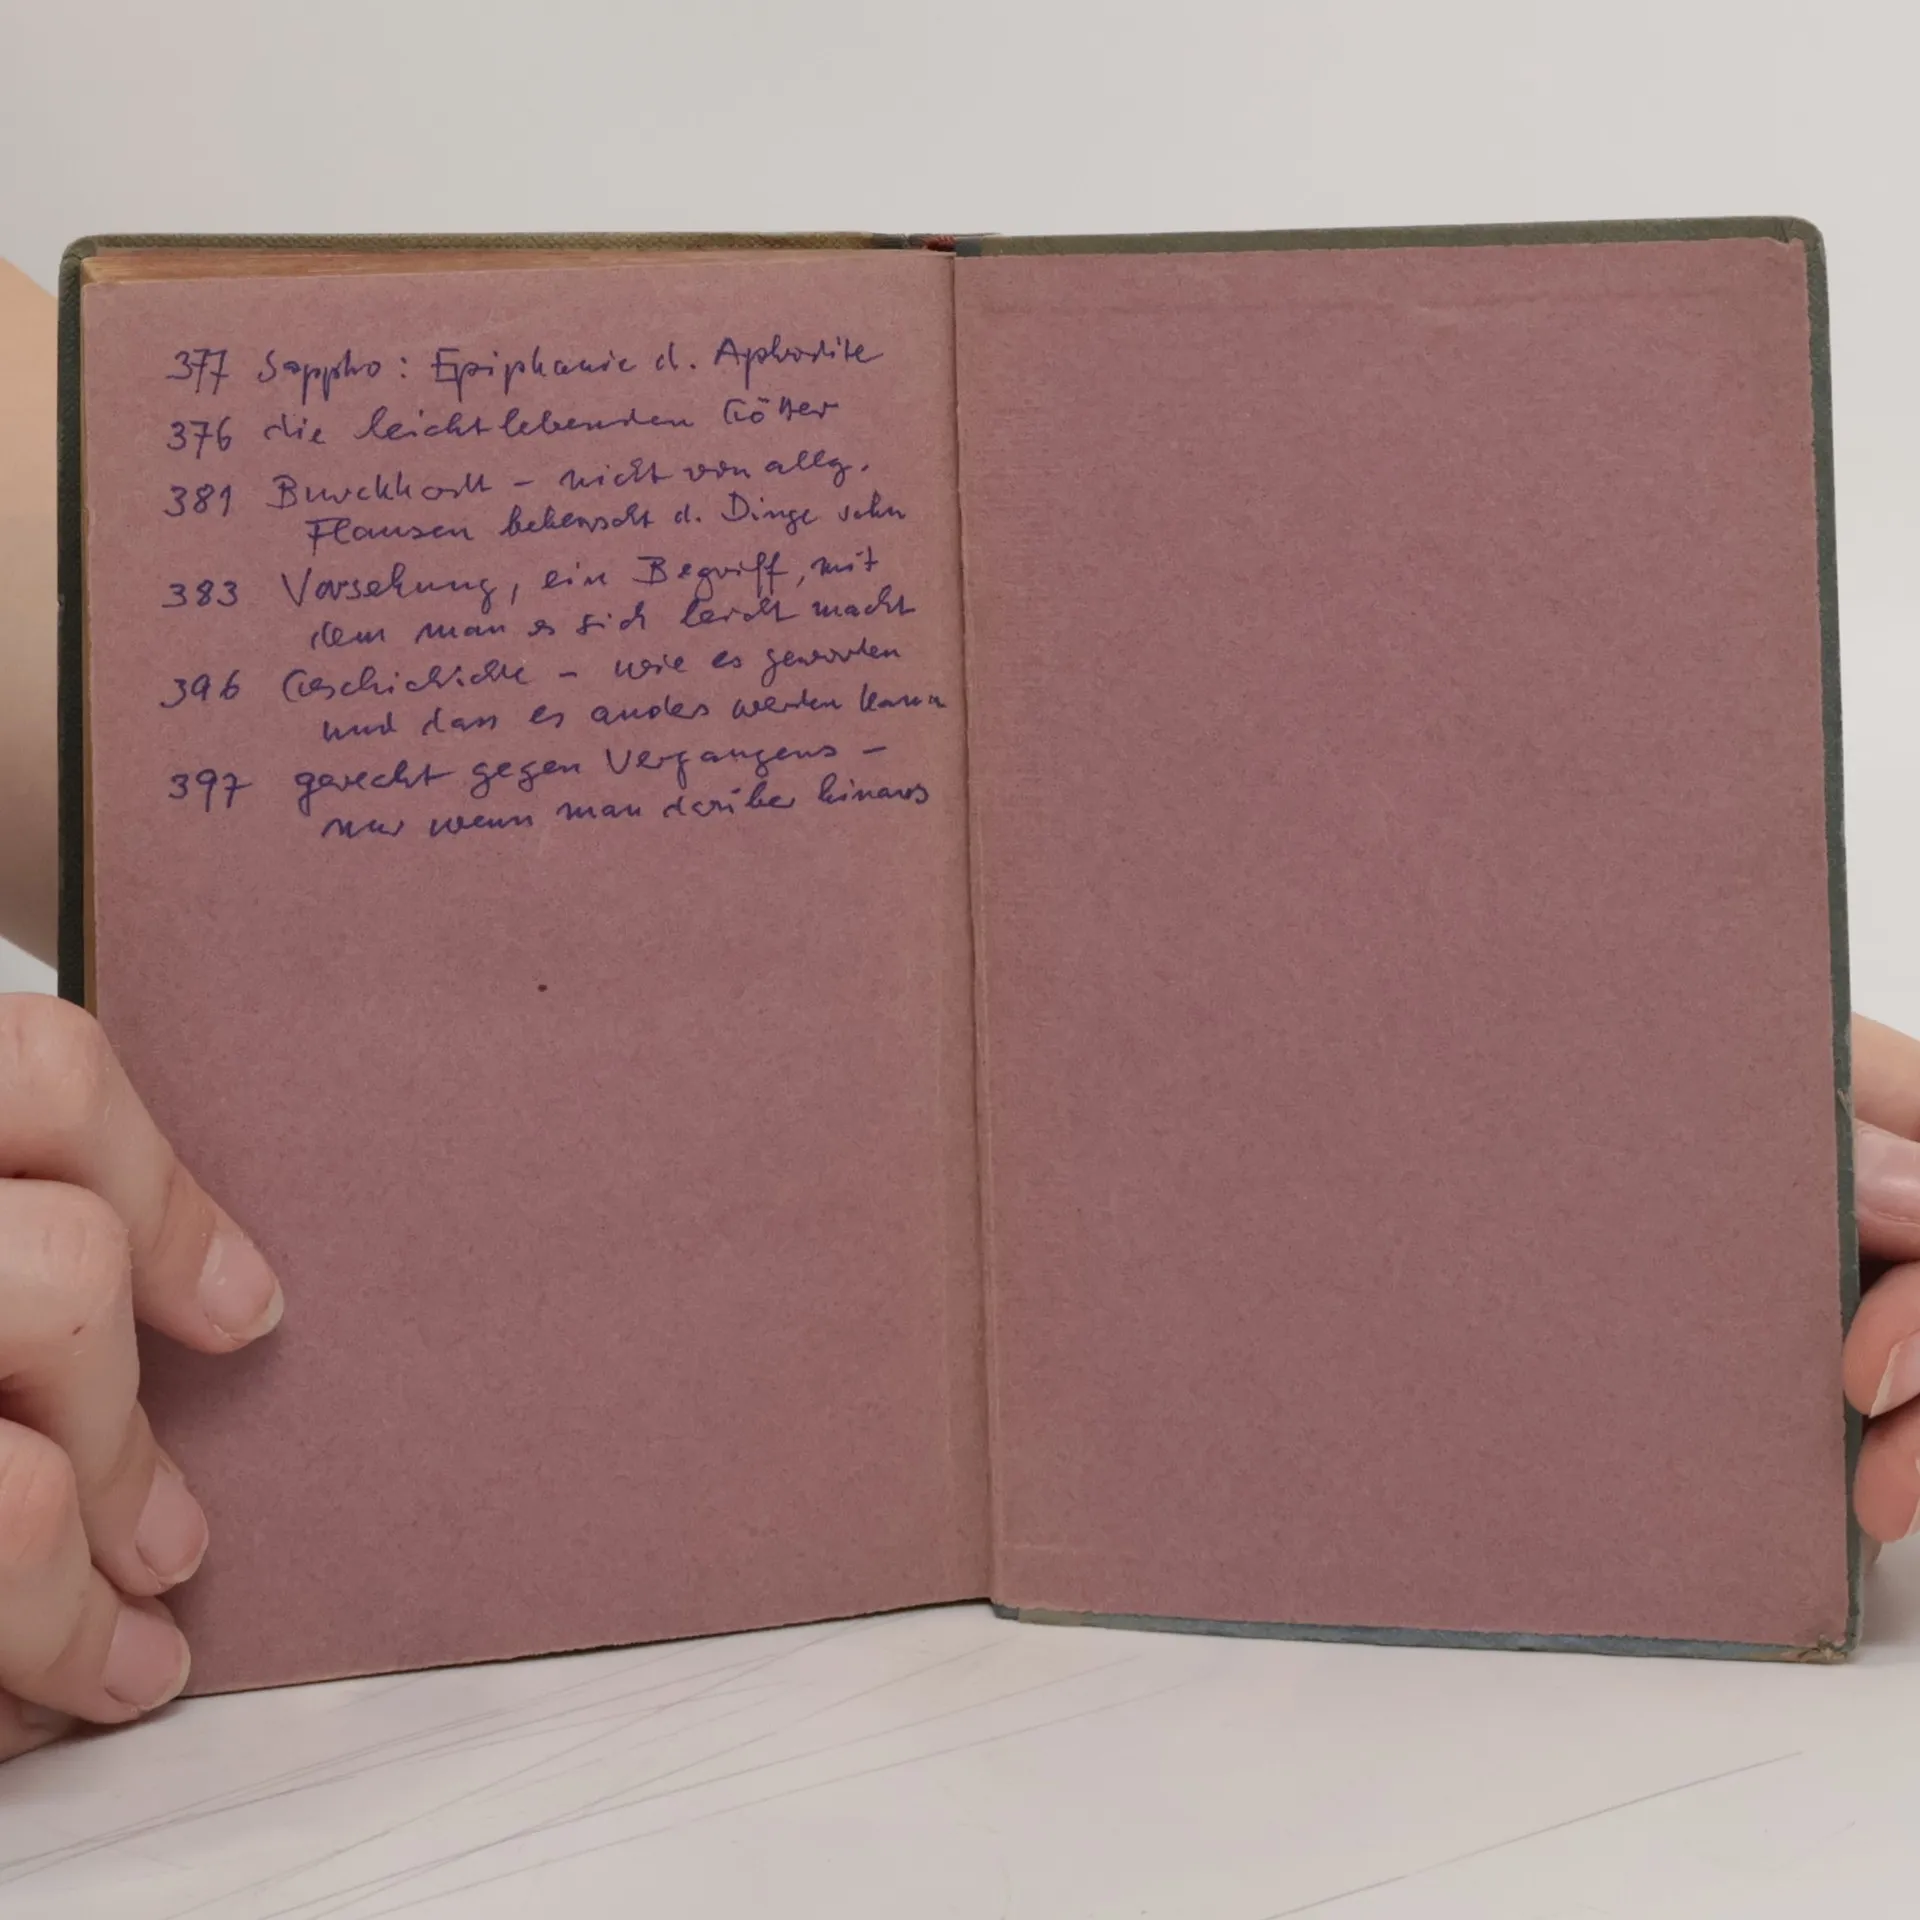 377 Sappho: Epiphanie d. Aphrodite
376 die leichtlebenden Götter
381 Burckhardt - nicht von allg.
Flausen beherrscht d. Dinge sehn
383 Vorsehung, ein Begriff, mit
dem man es sich leicht macht
396 Geschichte - wie es geworden
und dass es anders werden kann
397 gerecht gegen Vergangens -
nur wenn man darüber hinaus